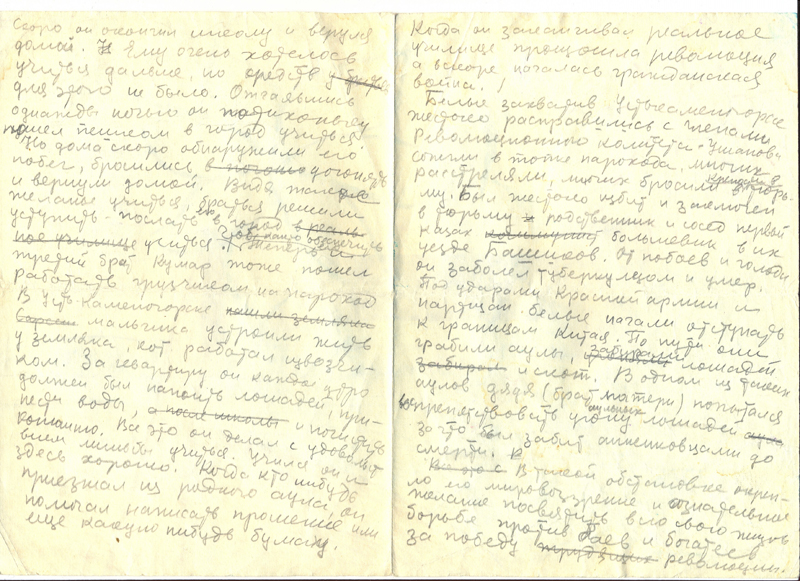 Скоро он окончил школу и вернулся
домой. И Ему очень хотелось
учиться дальше, но средств
для этого не было. Отчаявшись
однажды ночью он потихоньку
пошел пешком в город учиться.
Но дома скоро обнаружили его
побег, бросились в погоню догонять
и вернули домой. Видя
желание учиться, братья решили
уступить - послать его в город в реаль
ное училище учиться. Чтобы обеспечить
третий брат Кумар тоже пошел
работать грузчиком на пароход
В Усть-Каменогорске нашли земляка
мальчика устроили жить
у земляка, кот. работал извозчи-
ком. За квартиру он каждое утро
должен был напоить лошадей, при-
нести воды, а после школы и почистить
конюшню. Все это он делал с удовольст
вием лишь бы учиться. Учился он и
здесь хорошо. Когда кто нибудь
приезжал из родного аула, он
помогал написать прошение или
еще какую нибудь бумагу.
Когда он заканчивал реальное
училище произошла революция
а вскоре началась гражданская
война.
Белые захватив Устькаменогорск
жестоко расправились с членами
Революционного комитета - Ушанова
сожгли в топке парохода, многих
расстреляли, многих бросили в крепость тюрь-
му. Был жестоко избит и заключен
в тюрьму и родственник и сосед первый
казах коммунист большевик в их
уезде Башиков. От побоев и голода
он заболел туберкулезом и умер.
Под ударами Красной армии и
партизан белые начали отступать
к границам Китая. По пути они
грабили аулы, лошадей
забирали и скот. В одном из таких
аулов дядя (брат матери) попытался
воспрепятствовать угону аульных лошадей
за что был забит анненковцами до
смерти.
Все это с В такой обстановке окреп-
ло его мировоззрение и сознательное
желание посвятить всю свою жизнь
борьбе против баев и богатеев
за победу трудящихся революции.